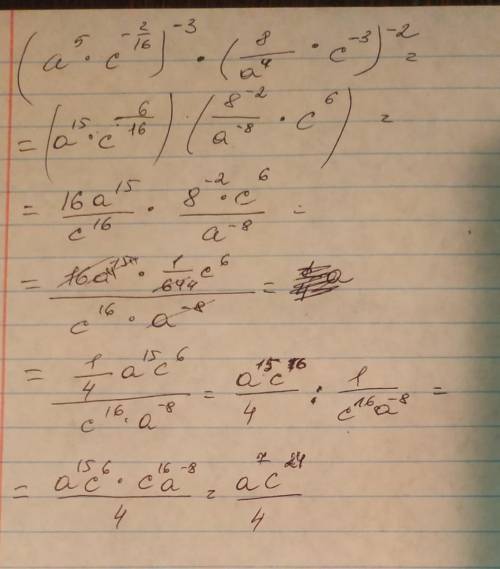 (a⁵ · c^(-2/16))⁻³ · (8/a⁴ · c⁻³)⁻² =
= (a¹⁵ · c^(-6/16)) · (8⁻²/a⁻⁸ · c⁶) =
= 16a¹⁵/c¹⁶ · 8⁻² · c⁶/a⁻⁸ =
= 16a¹⁵ · 1/64 c⁶ / c¹⁶ · a⁻⁸ = a
= 1/4 a¹⁵c⁶ / c¹⁶ · a⁻⁸ = a¹⁵c⁶/4 : 1/c¹⁶a⁻⁸ =
= a¹⁵c⁶ · c¹⁶a⁻⁸/4 = a⁷c²⁴/4